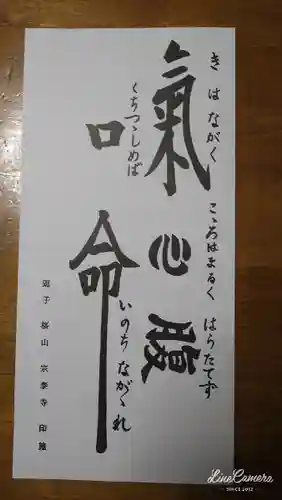 きはながく こゝろはまるく はらたてず
氣 心 腹
くちつゝしめば
口
命
いのちながゝれ
逗子 桜山 宗泰寺 印施
LineCamera
SINCE 2012